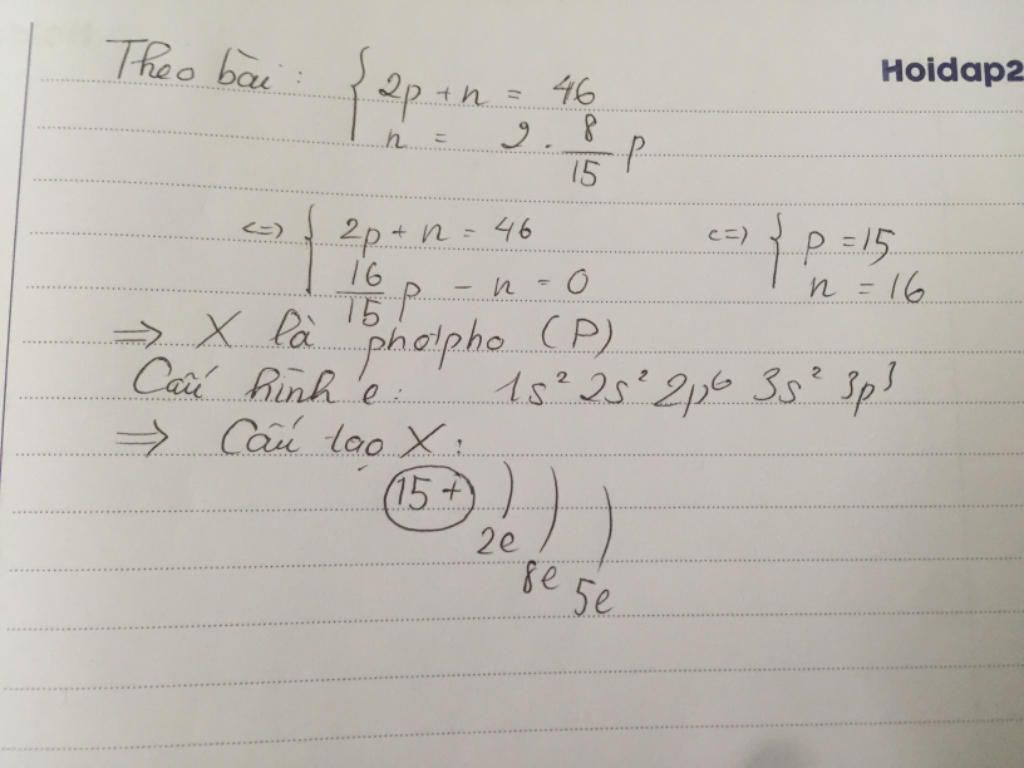 Theo bài: { 2p + n = 46
n = 2 . 8/15 p
Hoidap2
<=> { 2p + n = 46
16/15 p - n = 0
<=> { p = 15
n = 16
=> X là photpho (P)
Cấu hình e: 1s² 2s² 2p⁶ 3s² 3p³
=> Cấu tạo X:
15+ ) ) )
2e
8e 5e